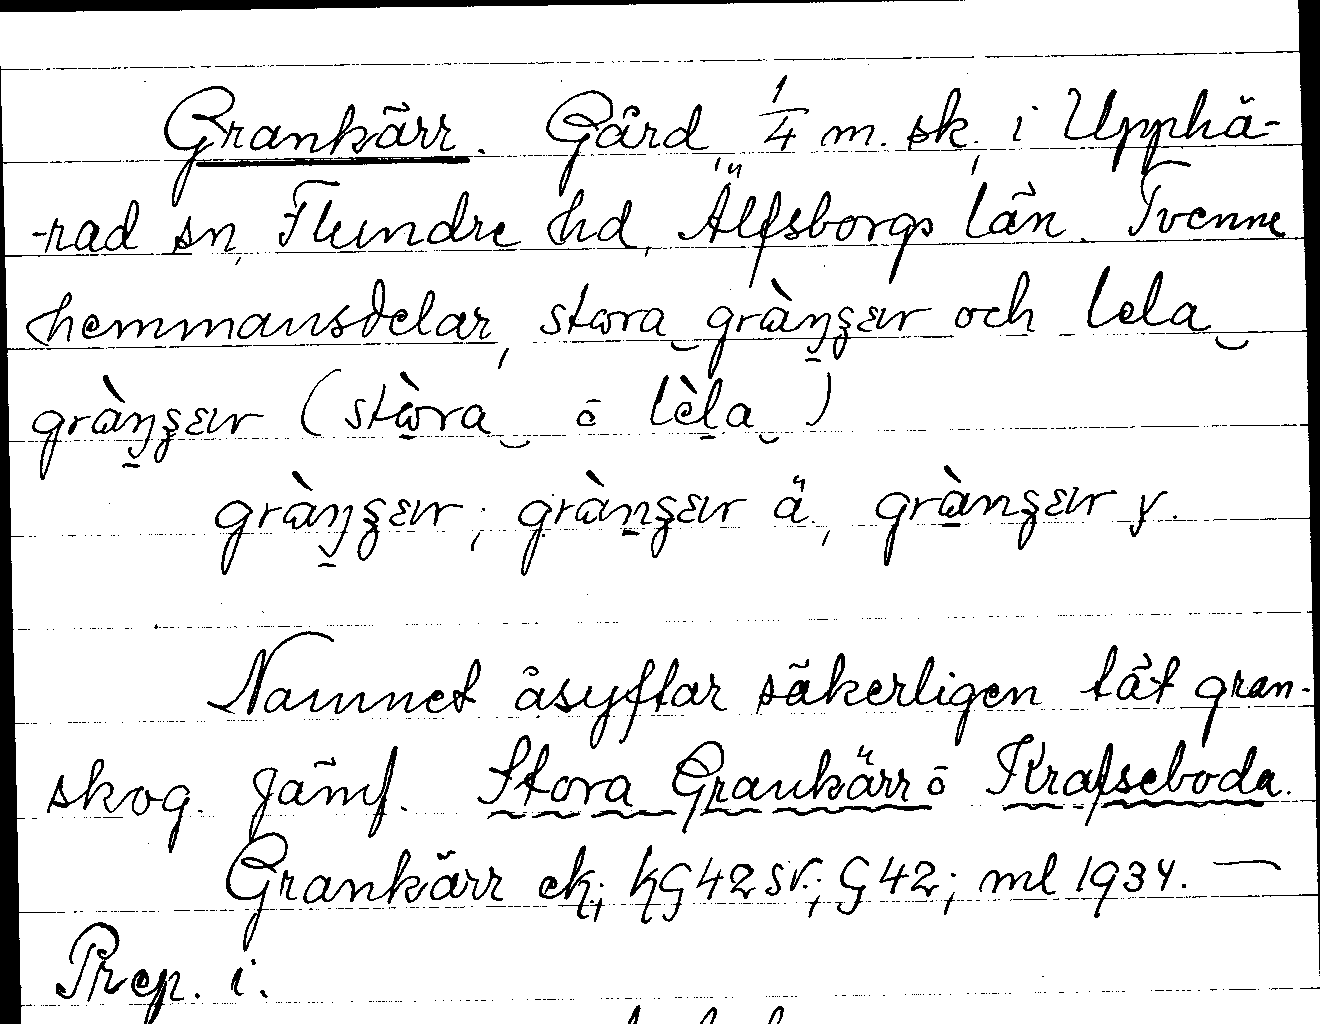 Grankärr. Gård, 1/4 m. sk., i Upphä-
-rad sn, Flundre hd, Älfsborgs län. Tvenne
hemmansdelar, stora och lela
(stòra ō lèla)
ä, y.
Namnet åsyftar säkerligen tät gran-
skog. Jämf. Stora Grankärr ō Krafseboda.
Grankärr ek; kG 42 sv.; G 42; ml 1934. —
Prep. i.